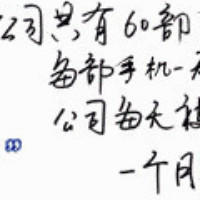 公司共有60部
每部手机一
公司每天
一个月
”